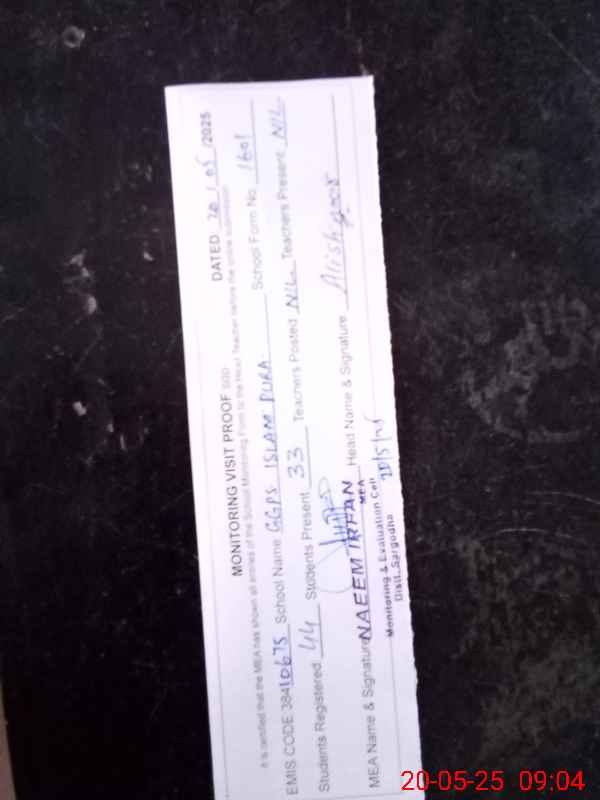 MONITORING VISIT PROOF SGD DATED 20/05/2025
It is certified that the MEA has shown all entries of the School Monitoring Form to the Head Teacher before the online submission
EMIS CODE 38410675 School Name GGPS ISLAM PURA School Form No 1601
Students Registered 44 Students Present 33 Teachers Posted NIL Teachers Present NIL
MEA Name & Signature NAEEM IRFAN Head Name & Signature
MEA
Monitoring & Evaluation Cell
Distt. Sargodha
20/5/25
20-05-25 09:04